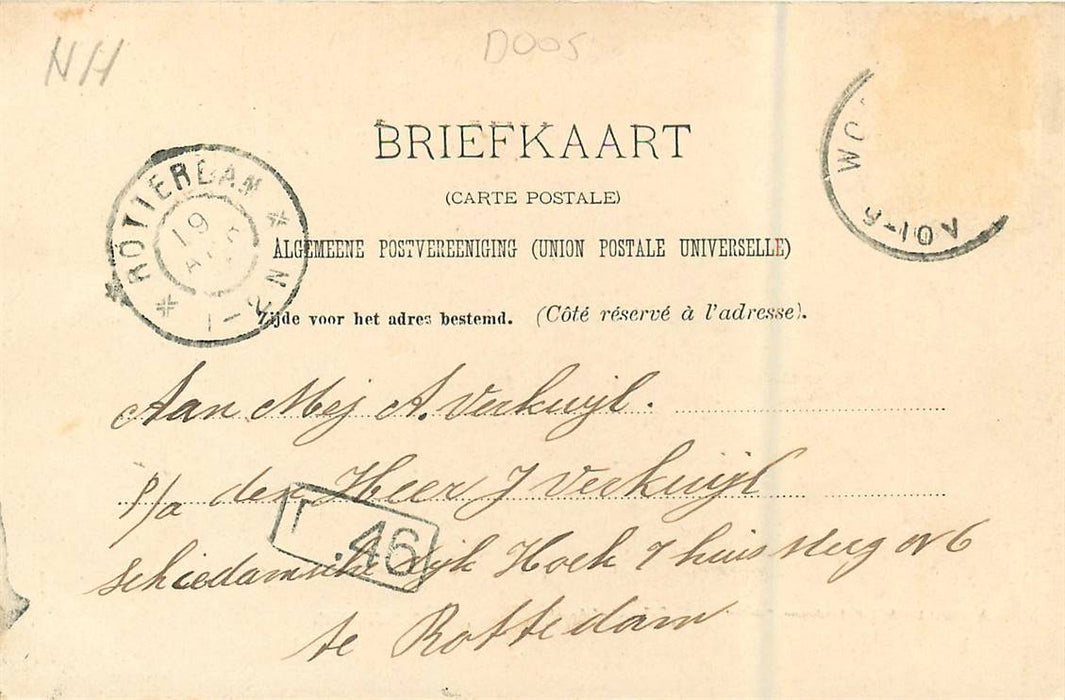 NH
DOOS
BRIEFKAART
(CARTE POSTALE)
ALGEMEENE POSTVEREENIGING (UNION POSTALE UNIVERSELLE)
Zijde voor het adres bestemd. (Côté réservé à l'adresse).
ROTTERDAM
19
1-2N
8-10V
Aan Mej A. Verkuijl.
p/a den Heer J Verkuijl
Schiedamsche dijk Hoek 7 huis steeg No 6
te Rottedam
46